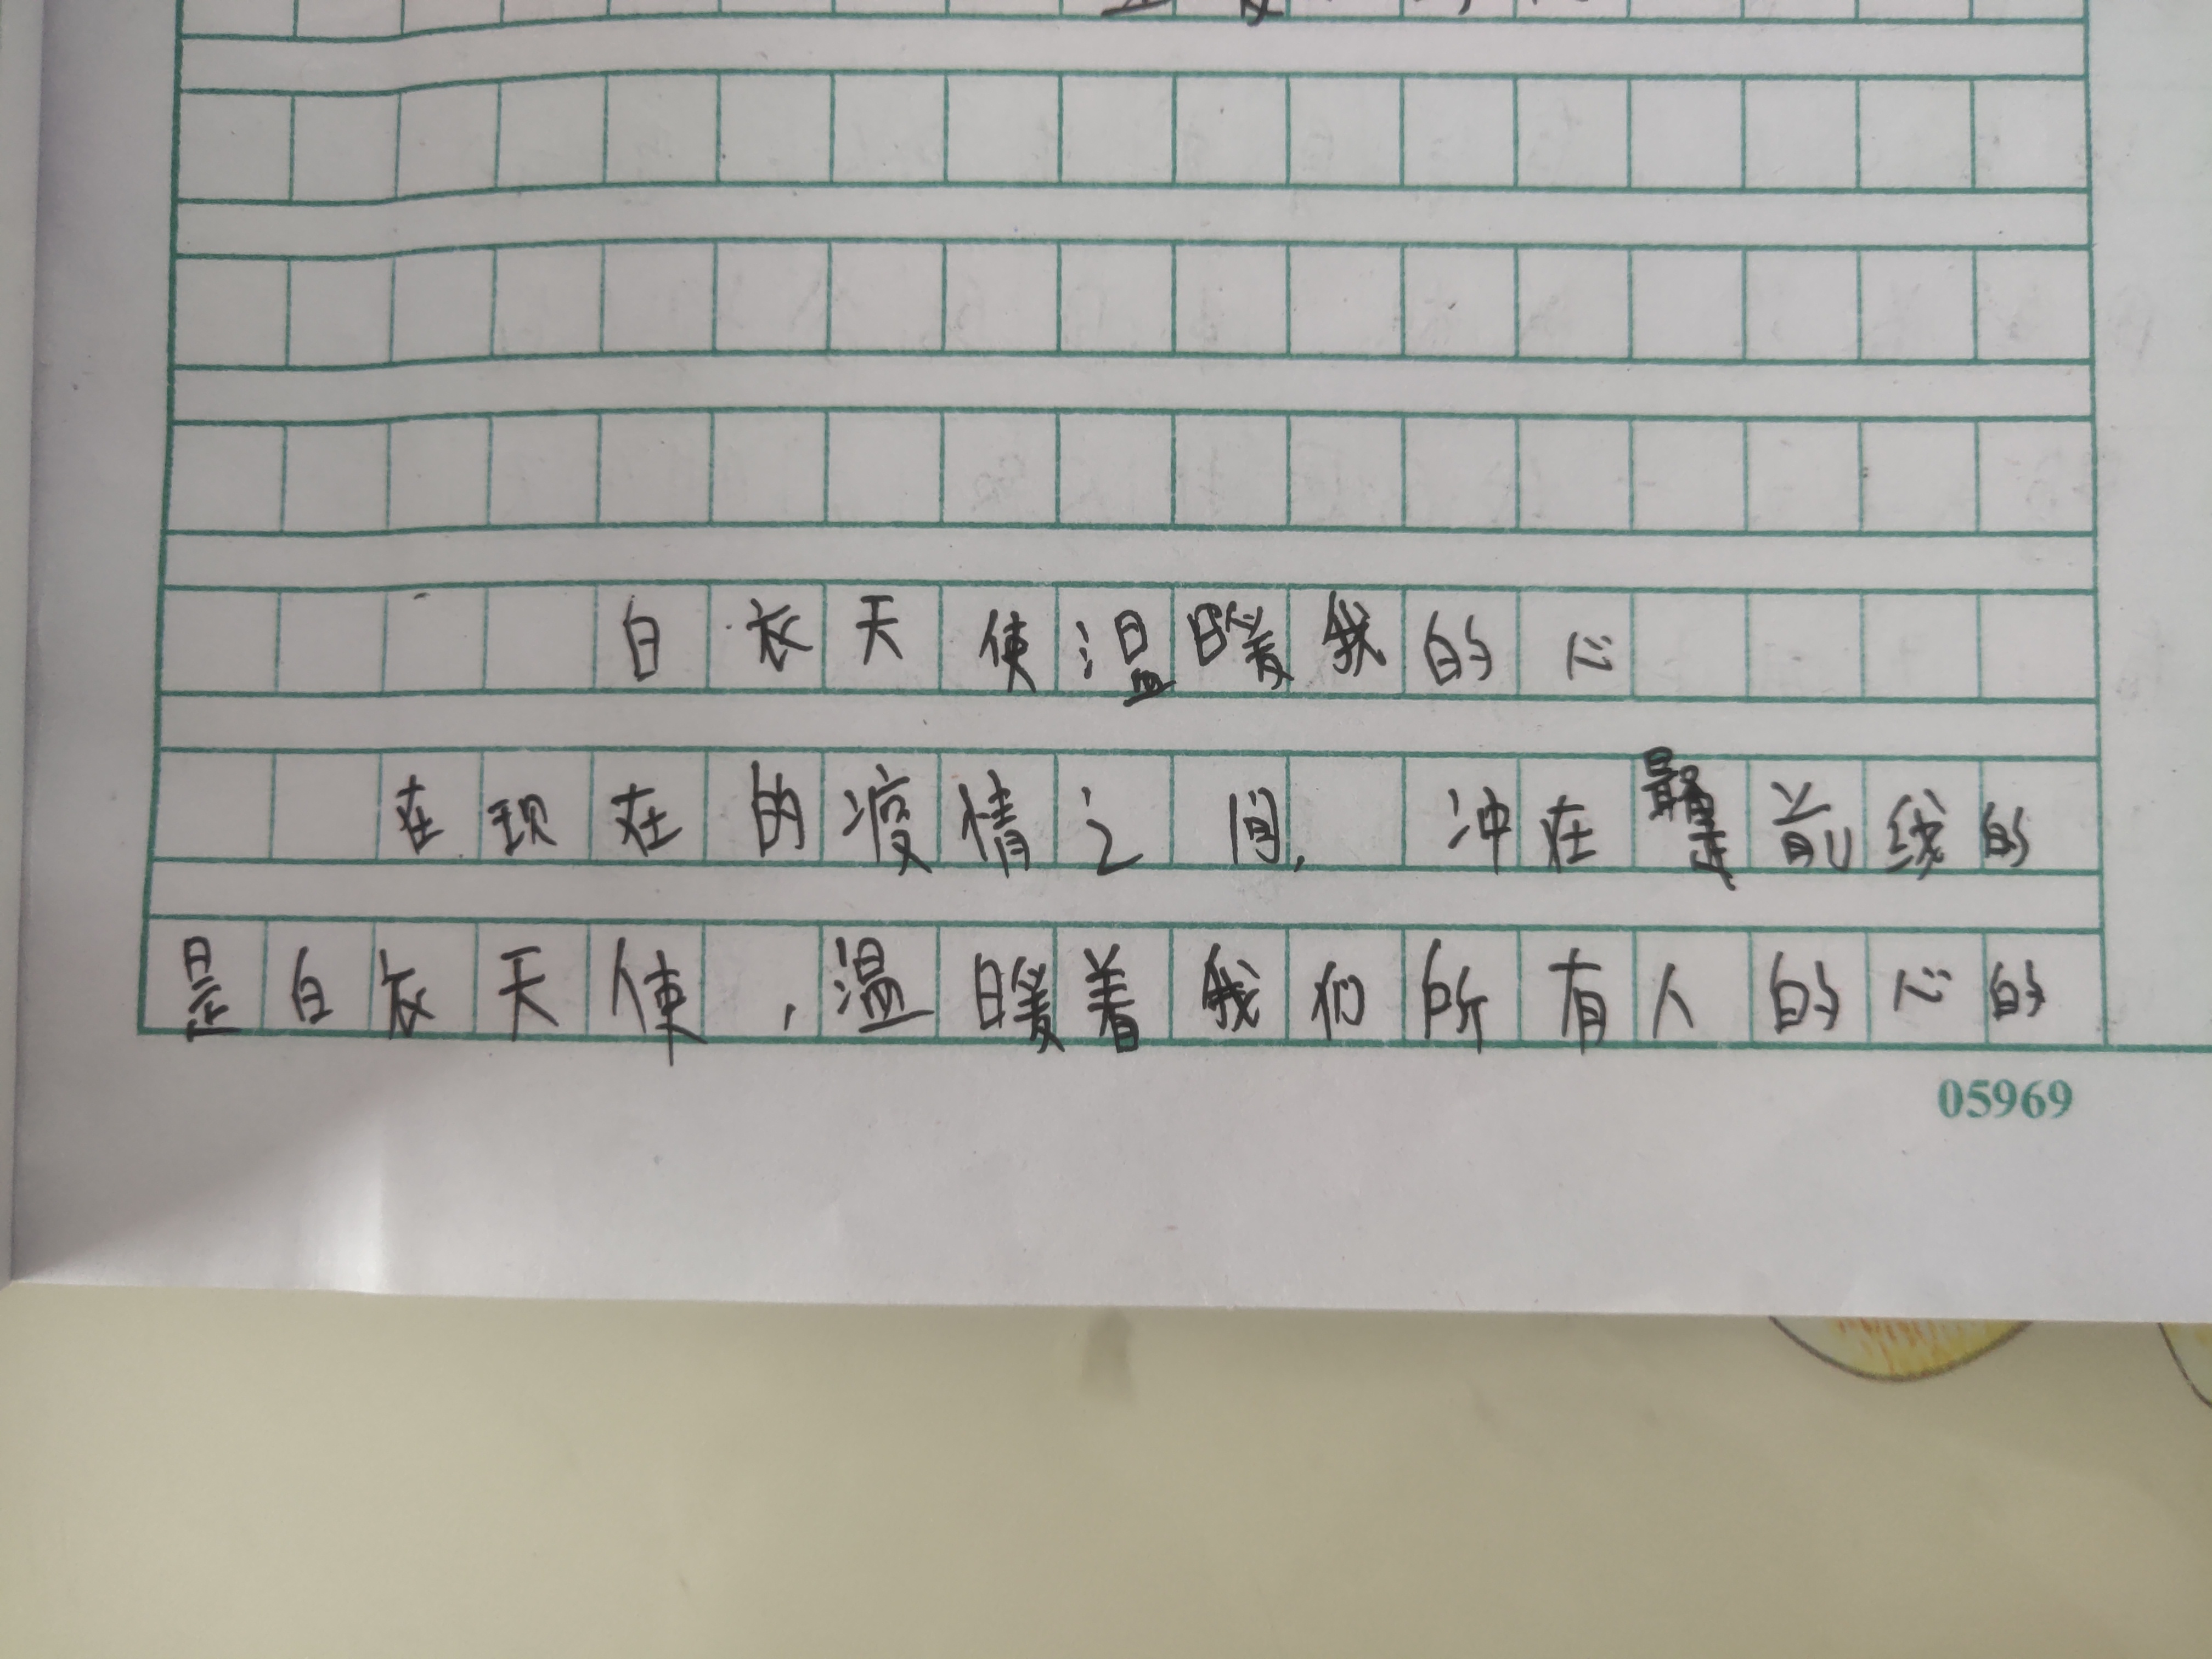 白衣天使温暖我的心
在现在的疫情之间,冲在最前线的
是白衣天使,温暖着我们所有人的心的
05969